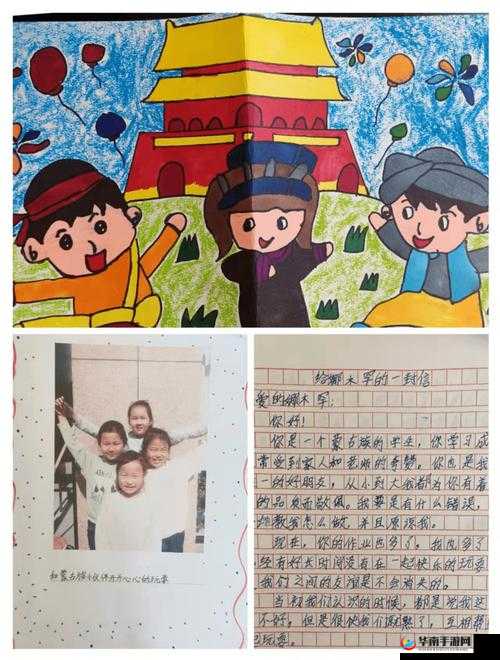 和蒙古族小伙伴开开心心的玩耍
给娜木罕的一封信
爱的娜木罕：
你好！
你是一个蒙古族的学生，你学习成
常受到家人和老师的夸赞，你也是我
一的好朋友，从小到大我都为你有着
的品质而敬佩。我要是有什么错误，
教我怎么做，并且原谅我。
现在，你的作业也多了，我也多了
经有好长时间没有在一起快乐的玩耍
我们之间的友谊是不会消失的。
当初我们认识的时候，都是觉我这
不好，但是很快我们熟了，互相帮
玩耍。
华南手游网